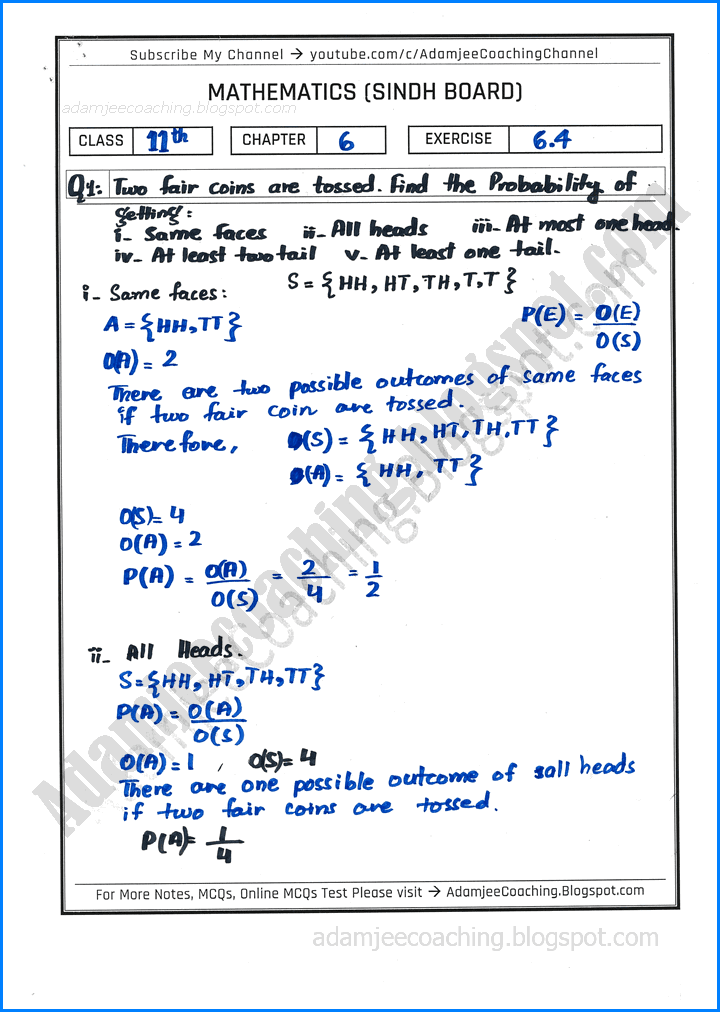 Subscribe My Channel → youtube.com/c/AdamjeeCoachingChannel
MATHEMATICS (SINDH BOARD)
adamjeecoaching.blogspot.com
CLASS 11th CHAPTER 6 EXERCISE 6.4
Q1: Two fair coins are tossed. Find the Probability of
getting:
i- Same faces ii- All heads iii- At most one head.
iv- At least two tail v- At least one tail.
S = {HH, HT, TH, T,T}
i- Same faces:
A = {HH, TT}
P(E) = O(E)/O(S)
O(A) = 2
There are two possible outcomes of same faces
if two fair coin are tossed.
Therefore, O(S) = {HH, HT, TH, TT}
O(A) = {HH, TT}
O(S) = 4
O(A) = 2
P(A) = O(A)/O(S) = 2/4 = 1/2
ii- All Heads.
S = {HH, HT, TH, TT}
P(A) = O(A)/O(S)
O(A) = 1 , O(S) = 4
There are one possible outcome of sall heads
if two fair coins are tossed.
P(A) = 1/4
Adamjeecoaching.blogspot.com
For More Notes, MCQs, Online MCQs Test Please visit → AdamjeeCoaching.Blogspot.com
adamjeecoaching.blogspot.com